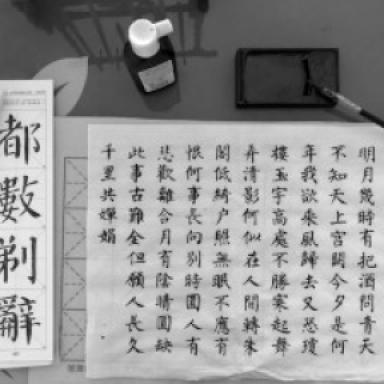 明月幾時有把酒問青天
不知天上宮闕今夕是何
年我欲乘風歸去又恐瓊
樓玉宇高處不勝寒起舞
弄清影何似在人間轉朱
閣低綺户照無眠不應有
恨何事長向別時圓人有
悲歡離合月有陰晴圓缺
此事古難全但願人長久
千里共嬋娟
都數剃辭